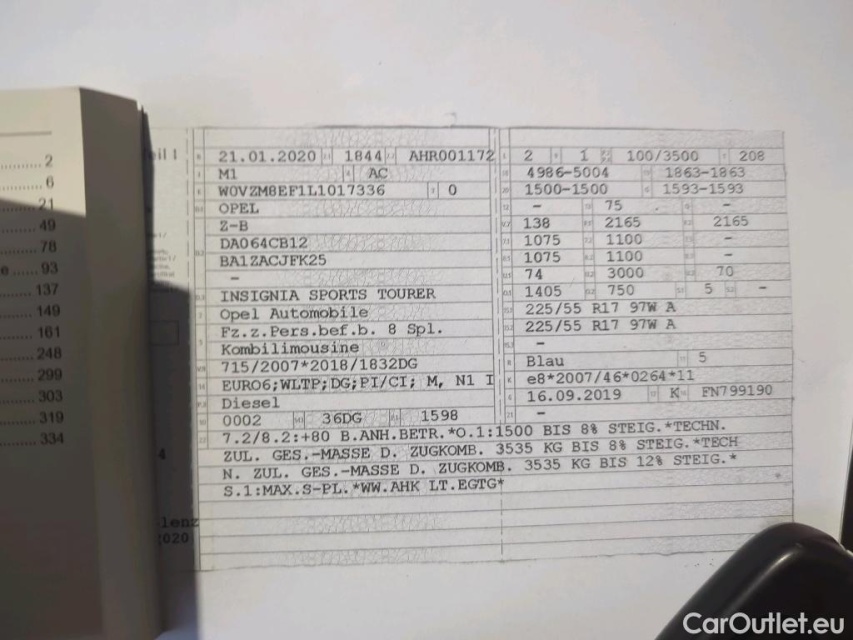 2
6
21
49
78
e ..... 93
137
149
161
248
299
303
319
334
eil I
4
lenz
2020
21.01.2020 1844 AHR001172
M1 AC
W0VZM8EF1L1017336 0
OPEL
Z-B
DA064CB12
BA1ZACJFK25
–
INSIGNIA SPORTS TOURER
Opel Automobile
Fz.z.Pers.bef.b. 8 Spl.
Kombilimousine
715/2007*2018/1832DG
EURO6;WLTP;DG;PI/CI; M, N1 I
Diesel
0002 36DG 1598
2 1 100/3500 208
4986-5004 1863-1863
1500-1500 1593-1593
– 75 –
138 2165 2165
1075 1100 –
1075 1100 –
74 3000 70
1405 750 5 –
225/55 R17 97W A
225/55 R17 97W A
–
Blau 5
e8*2007/46*0264*11
16.09.2019 K FN799190
–
7.2/8.2:+80 B.ANH.BETR.*O.1:1500 BIS 8% STEIG.*TECHN.
ZUL. GES.-MASSE D. ZUGKOMB. 3535 KG BIS 8% STEIG.*TECH
N. ZUL. GES.-MASSE D. ZUGKOMB. 3535 KG BIS 12% STEIG.*
S.1:MAX.S-PL.*WW.AHK LT.EGTG*
CarOutlet.eu